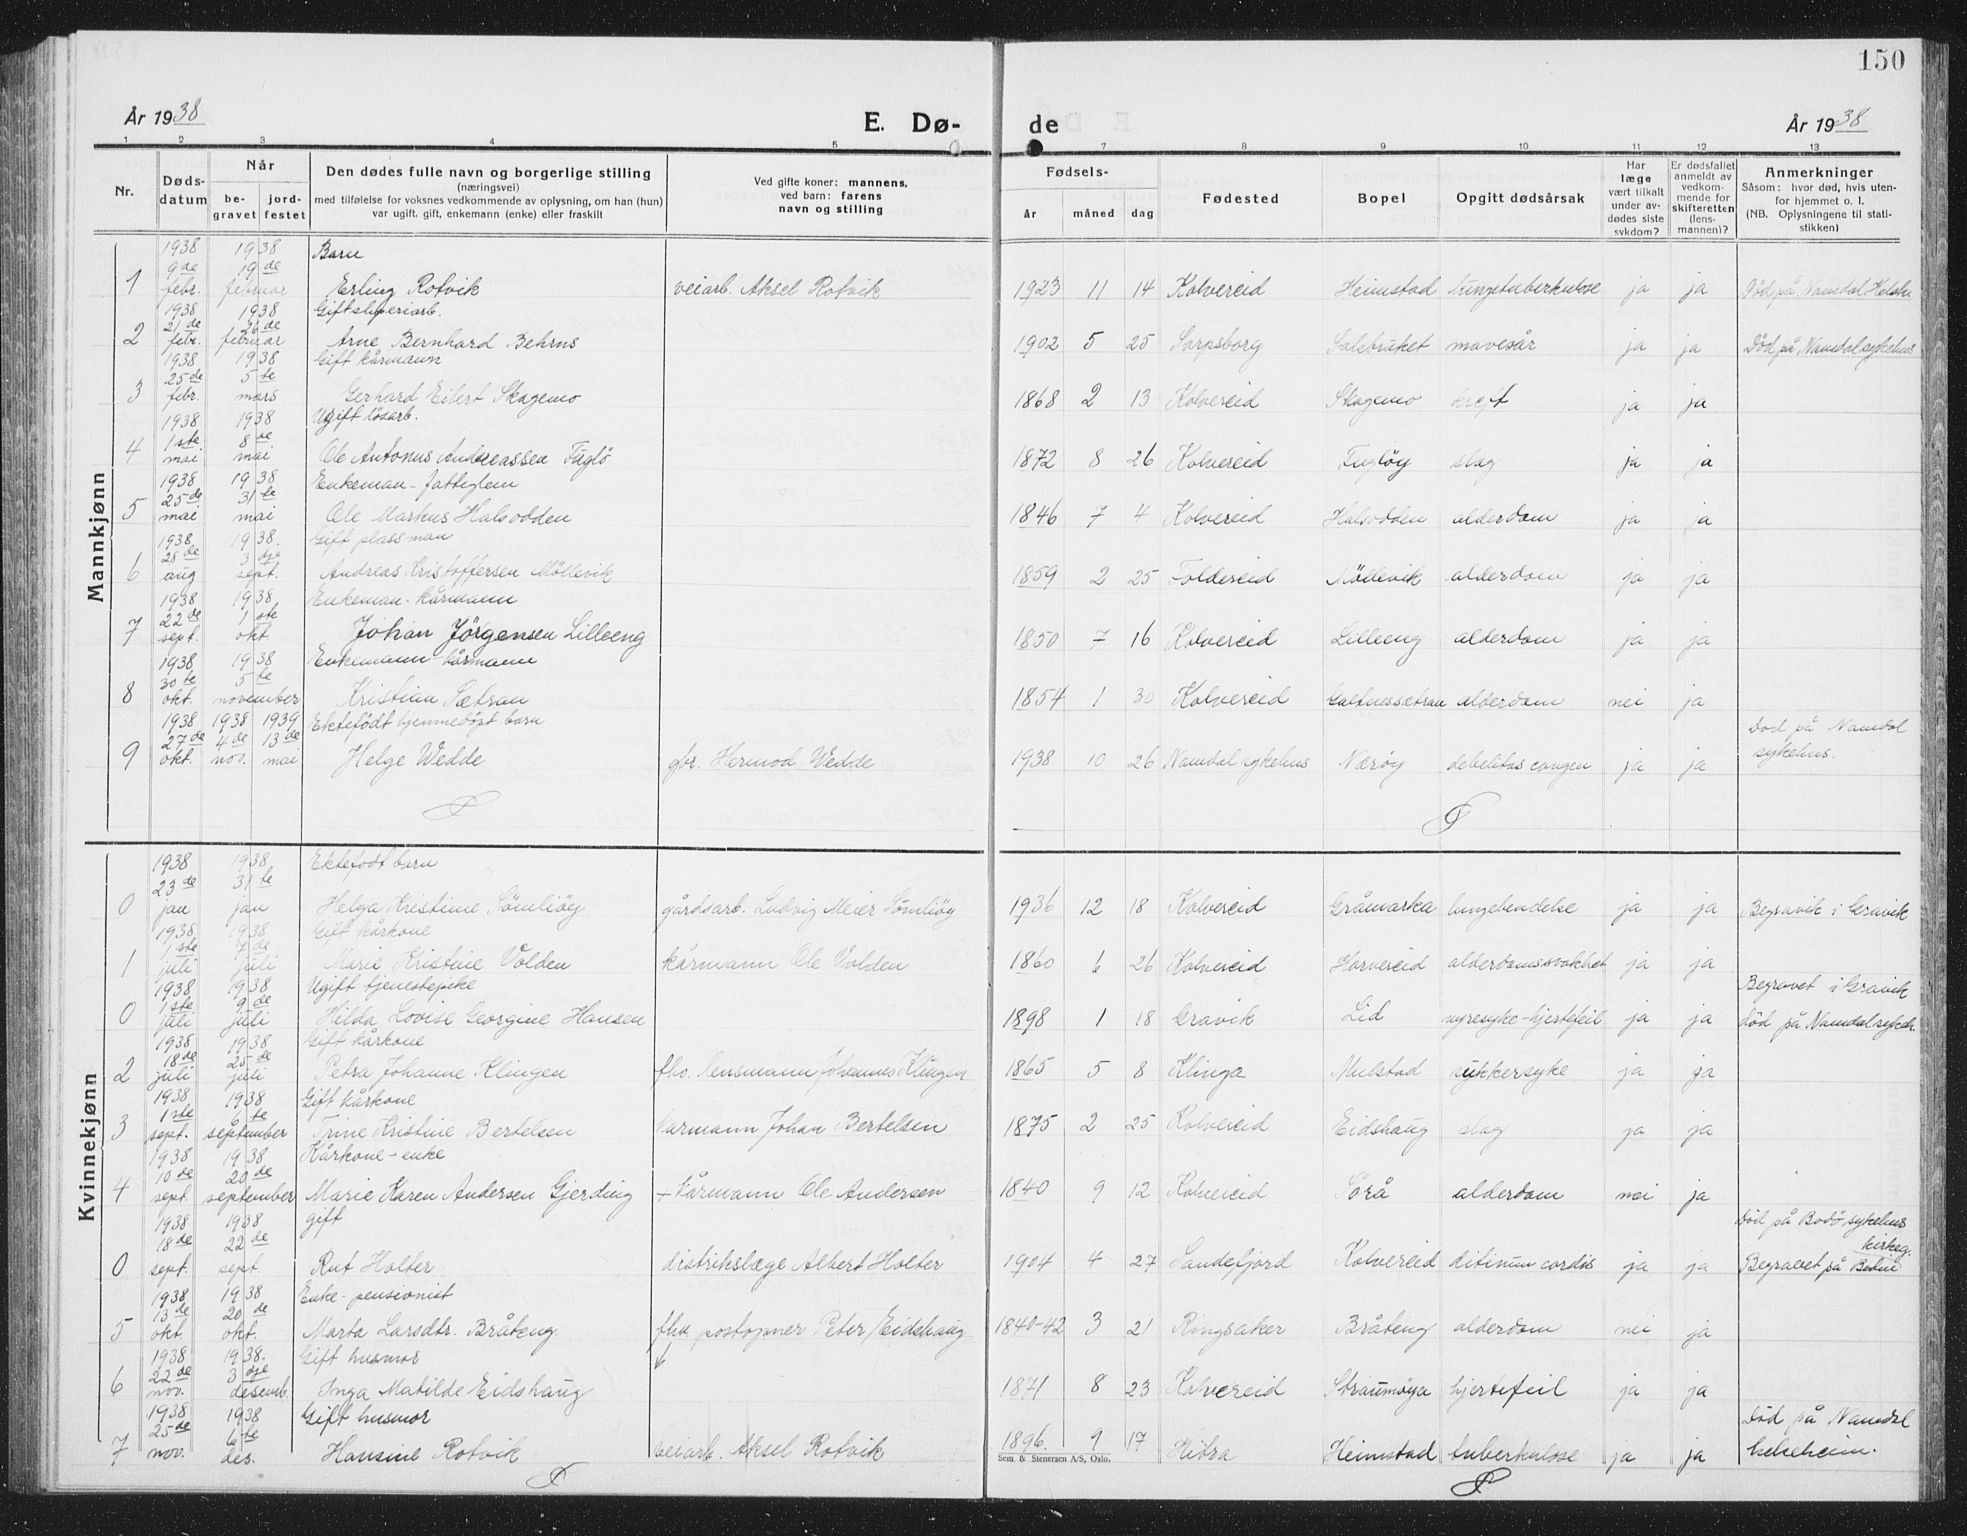 150
År 1938
E. Dø-
de
År 1938
1 2 3 4 5
7 8 9 10 11 12 13
Nr.
Døds-
datum
Når
be-
gravet
jord-
festet
Den dødes fulle navn og borgerlige stilling
(næringsvei)
med tilføielse for voksnes vedkommende av oplysning, om han (hun)
var ugift, gift, enkemann (enke) eller fraskilt
Ved gifte koner: mannens,
ved barn: farens
navn og stilling
Fødsels-
år måned dag
Fødested
Bopel
Opgitt dødsårsak
Har
læge
vært tilkalt
under av-
dødes siste
sykdom?
Er dødsfallet
anmeldt av
vedkom-
mende for
skifteretten
(lens-
mannen)?
Anmerkninger
Såsom: hvor død, hvis uten-
for hjemmet o. l.
(NB. Oplysningene til stati-
stikken)
Mannkjønn
1938 1938 Barn
9de 19de
1 febr. februar Erling Rotvik veiarb. Aksel Rotvik 1923 11 14 Kolvereid Heimstad lungetuberkulose ja ja Död på Namdal
1938 1938 Gift sliperiarb.
21de 26de
2 febr. februar Arne Bernhard Behrns 1902 5 25 Sarpsborg Salsbruket mavesår ja ja Död på Namdal sykehus
1938 1938 Gift kårmann
25de 5te
3 febr. mars Gerhard Eilert Skagemo 1868 2 13 Kolvereid Skagemo kreft ja ja
1938 1938 Ugift lösarb.
1ste 8de
4 mai mai Ole Antonus Andreassen Fuglö 1872 8 26 Kolvereid Fuglöy slag ja ja
1938 1938 Enkeman - fattiglem
25de 31te
5 mai mai Ole Markus Halsodden 1846 7 4 Kolvereid Halsodden alderdom ja ja
1938 1938. Gift plassman
28de 3dje
6 aug sept. Andreas Kristoffersen Möllevik 1859 2 25 Foldereid Möllevik alderdom ja ja
1938 1938. Enkeman - kårmann
22de 1ste
7 sept. okt. Johan Jörgensen Lilleeng 1850 7 16 Kolvereid Lilleeng alderdom ja ja
1938 1938 Enkemann kårmann
30te 5te
8 okt. november Kristian Sætran 1854 1 30 Kolvereid Galtnessætran alderdom nei ja
1938 1938 1939 Ektefödt hjemmedöpt barn
27de 4de 13de Död på Namdal
9 okt. nov. mai Helge Wedde gbr. Hermod Wedde 1938 10 26 Namdal sykehus Nærøy debelitas congen ja ja sykehus.
Kvinnekjønn
1938 1938 Ektefödt barn
23de 31te
0 jan jan Helga Kristine Sömliöy gårdsarb. Ludvig Meier Sömliöy 1936 12 18 Kolvereid Gråmarka lungebendelse ja ja i Gravik
1938 1938 Gift kårkone
1ste 7de
1 juli juli Marie Kristine Volden kårmann Ole Volden 1860 6 26 Kolvereid Horvereid alderdomssvakhet ja ja
1938 1938 Ugift tjenestepike Begravet i Gravik
1ste 9de
0 juli juli Hilda Lovise Georgine Hansen 1898 1 18 Gravik Lid nyresyke-hjertefeil ja ja död på Namdal sykeh.
1938 1938 Gift kårkone
18de 25de
2 juli juli Petra Johanne Klingen fhv. lensmann Johannes Klingen 1865 5 8 Klinga Mulstad sukkersyke ja ja
1938 1938 Gift kårkone
1ste te
3 sept. september Trine Kristine Bertelsen kårmann Johan Bertelsen 1875 2 25 Kolvereid Eidshaug slag ja ja
1938 1938 Kårkone - enke
10de 20de
4 sept. september Marie Karen Andersen Gjerding + kårmann Ole Andersen 1840 9 12 Kolvereid Sörå alderdom nei ja
1938 1938 gift Död på Bodö sykehus
18de 22de kirkeg.
0 sept. sept. Rut Holter distrikslæge Albert Holter 1904 4 27 Sandefjord Kolvereid cordis ja ja Begravet på
1938 1938 Enke - pensionist
13de 20de
5 okt. okt. Marta Larsdtr. Bråteng fhv. postopner Peter Eidshaug 1840-42 3 21 Ringsaker Bråteng alderdom nei ja
1938 1938. Gift husmor
22de 3dje
6 nov. desemb. Inga Matilde Eidshaug 1871 8 23 Kolvereid Straumöya hjertefeil ja ja
1938 1938 Gift husmor Död på Namdal
25de 6te
7 nov. des. Hansine Rotvik veiarb. Aksel Rotvik 1896. 9 17 Hitra Heimstad tuberkulose ja ja helseheim.
Sem & Stenersen A/S, Oslo.